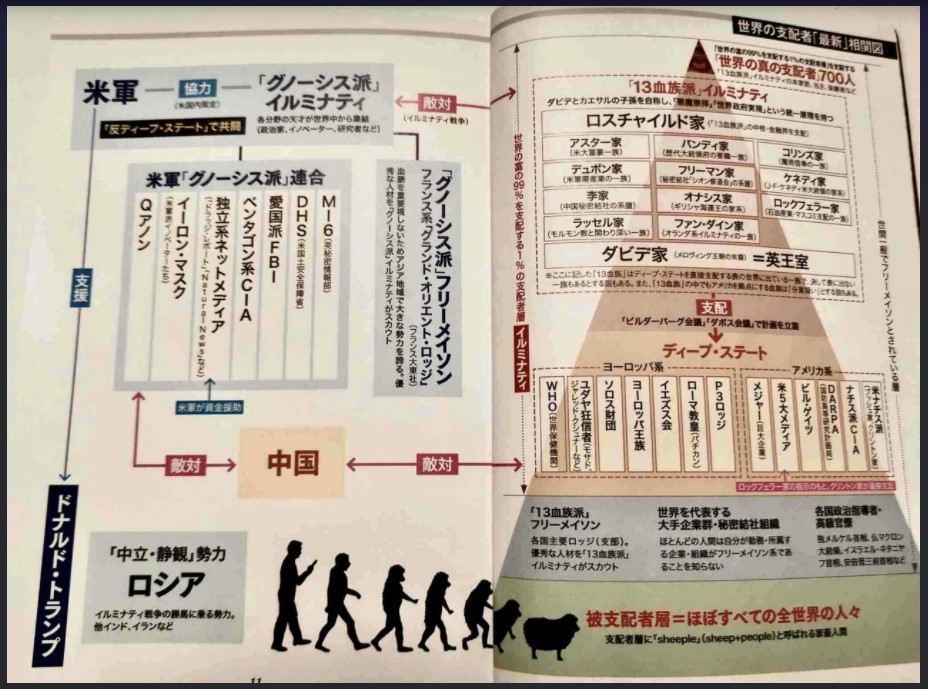 米軍
協力
(米国内限定)
「グノーシス派」
イルミナティ
「反ディープ・ステート」で共闘
各分野の天才が世界中から集結
(政治家、イノベーター、研究者など)
敵対
(イルミナティ戦争)
米軍「グノーシス派」連合
MI-6(英秘密情報部)
DHS(米国土安全保障省)
愛国派FBI
ペンタゴン系CIA
独立系ネットメディア
(「ドラッジ・レポート」、「Natural News」など)
イーロン・マスク
Qアノン
米軍が資金援助
「グノーシス派」フリーメイソン
フランス系「グランド・オリエント・ロッジ」
(フランス大東社)
血脈を重要視しないためアジア地域で大きな勢力を誇る。優
秀な人材を「グノーシス派」イルミナティがスカウト
支援
敵対
中国
敵対
ドナルド・トランプ
「中立・静観」勢力
ロシア
イルミナティ戦争の勝馬に乗る勢力。
他インド、イランなど
11
世界の支配者「最新」相関図
「世界の富の99%を支配する1%の支配者層」を支配する
「世界の真の支配者」700人
「13血族派」イルミナティ
ダビデとカエサルの子孫を自称し、「悪魔崇拝」「世界政府実現」という統一原理を持つ
ロスチャイルド家(「13血族派」の中核・金融界を支配)
アスター家
(米大富豪一族)
バンディ家
(歴代大統領府の要職一族)
コリンズ家
(魔術信奉の一族)
デュポン家
(米軍需産業の一族)
フリーマン家
(秘密結社「シオン修道会」の系譜)
ケネディ家
(J・F・ケネディ米大統領の家系)
李家
(中国秘密結社の系譜)
オナシス家
(ギリシャ海運王の家系)
ロックフェラー家
(石油産業・マスコミ支配の一族)
ラッセル家
(モルモン教と関わり深い一族)
ファン・ダイン家
(オランダ系イルミナティの一族)
ダビデ家(メロヴィング王朝の末裔)=英王室
※ここに記した「13血族」はディープ・ステートを直接支配する表の世界に出ている一族で、決して表に出ない
一族もあるとする説もある。また、「13血族」の中でもアメリカを拠点にする血族は「分家扱い」とする説もある。
世界の富の99%を支配する1%の支配者層
イルミナティ
世間一般でフリーメイソンとされている層
支配
「ビルダーバーグ会議」「ダボス会議」で計画を立案
ディープ・ステート
ヨーロッパ系
アメリカ系
WHO(世界保健機関)
ユダヤ狂信者(モサド、
ジャレッド・クシュナーなど)
ソロス財団
ヨーロッパ王族
イエズス会
ローマ教皇(バチカン)
P3ロッジ
メジャー(巨大企業)
米5大メディア
ビル・ゲイツ
DARPA
(国防高等研究計画局)
ナチス派CIA
米ナチス派
(ブッシュ家、クリントン家)
ロックフェラー家の指示のもと、クリントン家が直接支配
「13血族派」
フリーメイソン
各国主要ロッジ(支部)。
優秀な人材を「13血族派」
イルミナティがスカウト
世界を代表する
大手企業群・秘密結社組織
ほとんどの人間は自分が勤務・所属す
る企業・組織がフリーメイソン系であ
ることを知らない
各国政治指導者・
高級官僚
独メルケル首相、仏マクロン
大統領、イスラエル・ネタニヤ
フ首相、安倍晋三前首相など
被支配者層=ほぼすべての全世界の人々
支配者層に「sheeple」(sheep+people)と呼ばれる家畜人間